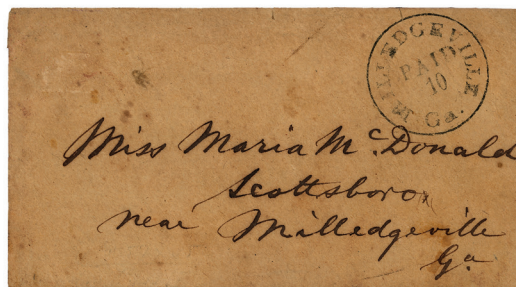 MILLEDGEVILLE Ga.
PAID
10
Miss Maria McDonald
Scottsboro
near Milledgeville
Ga